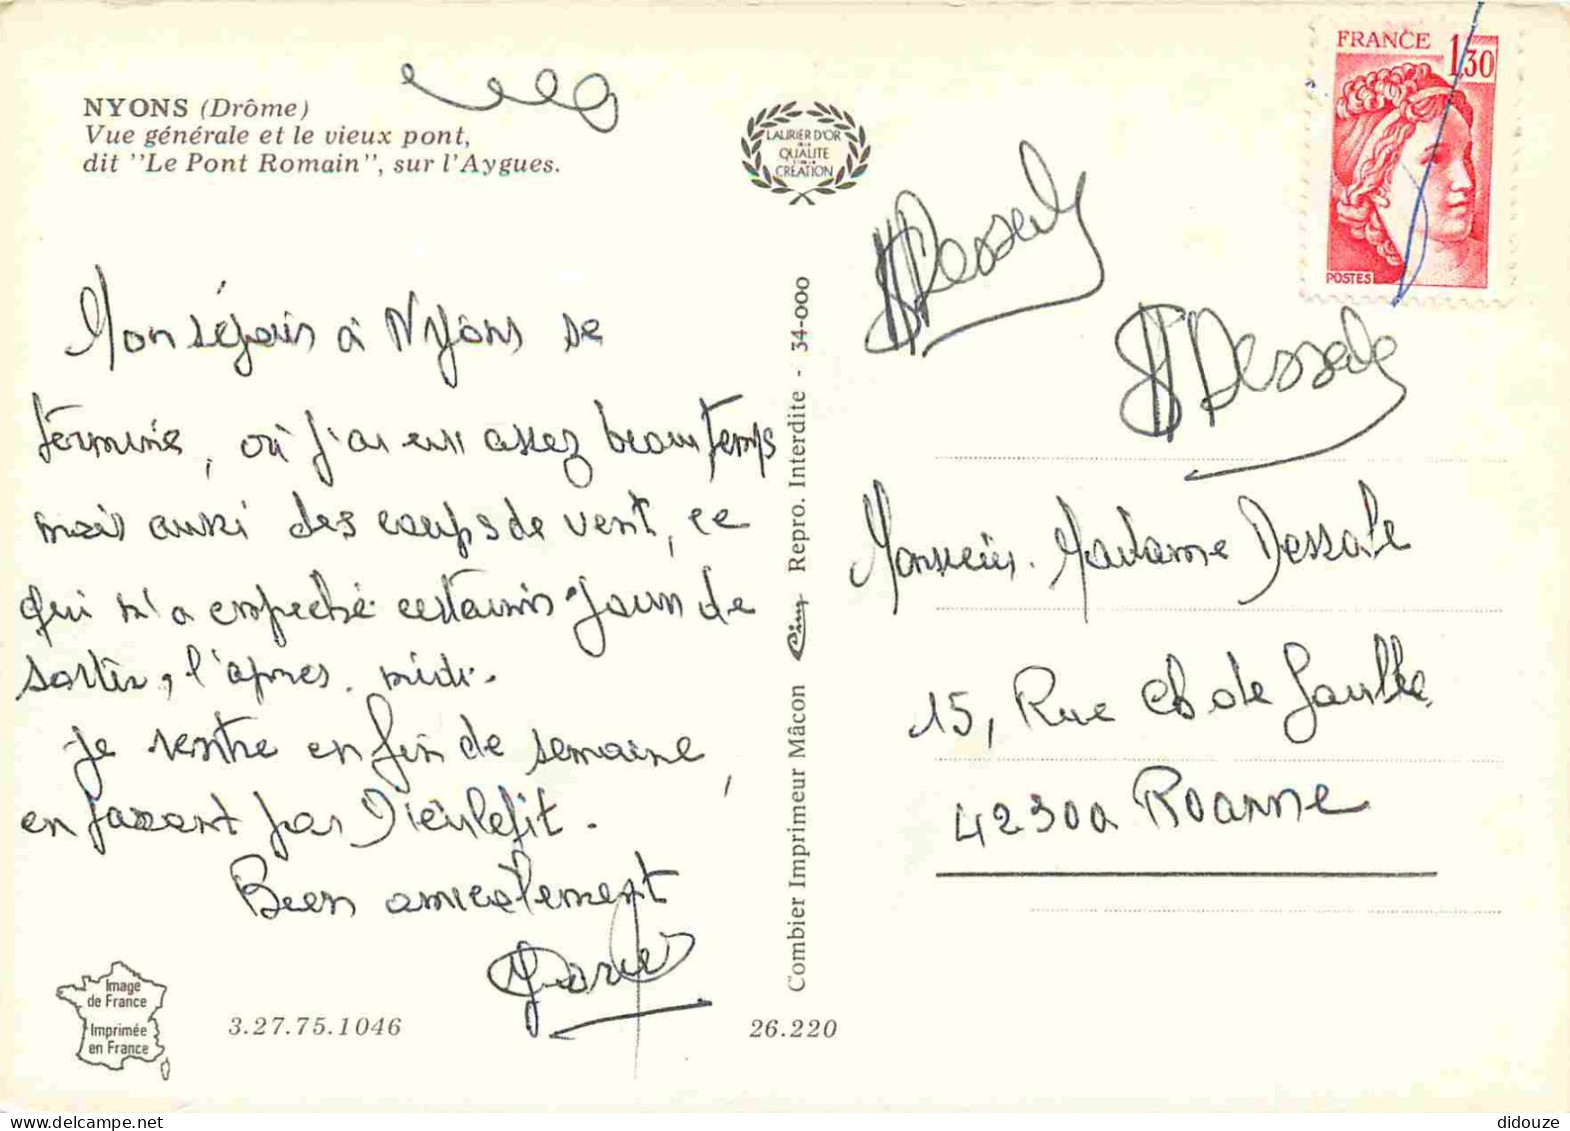 NYONS (Drôme)
Vue générale et le vieux pont,
dit ''Le Pont Romain'', sur l'Aygues.
Mon séjour à Nyons se
termine, où j'ai eu assez beau temps
mais aussi des coups de vent, ce
qui m'a empeché certains jours de
sortir, l'après-midi.
Je rentre en fin de semaine,
en passant par Dieulefit.
Bien amicalement
Image
de France
Imprimée
en France
3.27.75.1046
26.220
LAURIER D'OR
DE LA
QUALITE
CREATION
Combier Imprimeur Mâcon Cim Repro. Interdite - 34-000
FRANCE 1,30
POSTES
Dessale
Dessale
Monsieur. Madame Dessale
15, Rue Ch de Gaulle
42300 Roanne
didouze